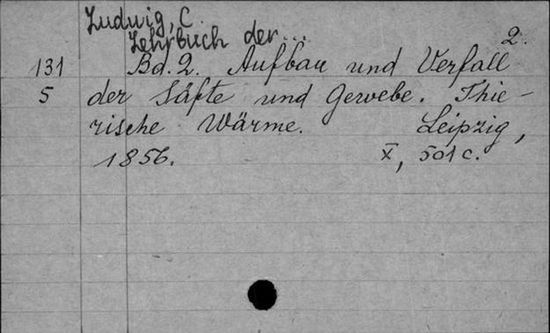 Ludwig, C.
Lehrbuch der... 2.
131 Bd. 2. Aufbau und Verfall
5 der Säfte und Gewebe. Thie-
rische Wärme. Leipzig,
1856. X, 501 c.